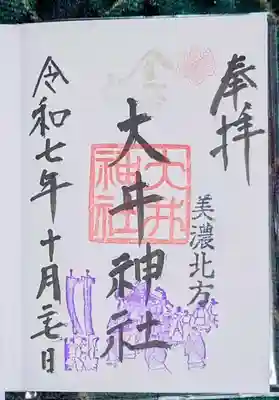 奉拝
美濃北方
大井神社
大井神社
令和七年十月二七日